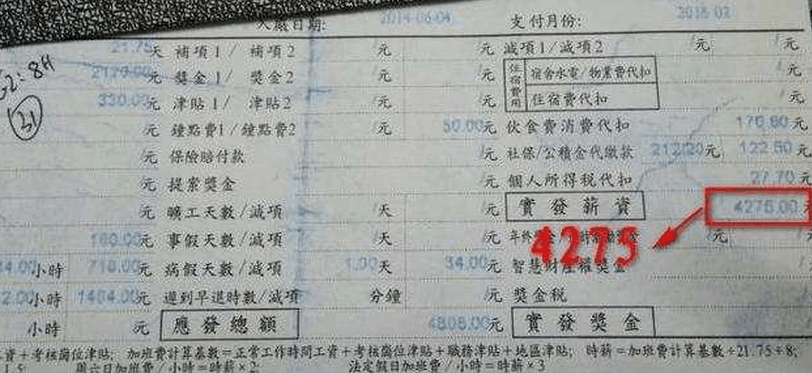 入廠日期: 2014-06-04 支付月份: 2018-02
21.75天 補項1/補項2 /元 /元 減項1/減項2 /元 /元
2170.00元 獎金1/ 獎金2 /元 /元 住宿費用 宿舍水電/物業費代扣
330.00元 津貼1/ 津貼2 /元 /元 住宿費代扣
62:8H
31
/元 鐘點費1/鐘點費2 /元 50.00元 伙食費消費代扣 170.60
/元 保險賠付款 /元 社保/公積金代繳款 212/20元 122.50元
/元 提案獎金 /元 個人所得稅代扣 27.70元
/元 曠工天數/減項 /天 /元 實發薪資 4275.00
160.00元 事假天數/減項 /天 /元 /元
4275
4.00小時 718.00元 病假天數/減項 1.00天 34.00元 智慧財產權獎金
2.00小時 1484.00元 遲到早退時數/減項 分鐘 /元 獎金稅
小時 元 應發總額 4808.00元 實發獎金
資+考核崗位津貼; 加班費計算基數=正常工作時間工資+考核崗位津貼+職務津貼+地區津貼; 時薪=加班費計算基數÷21.75÷8;
1.5; 週六日加班費/小時=時薪×2; 法定假日加班費/小時=時薪×3